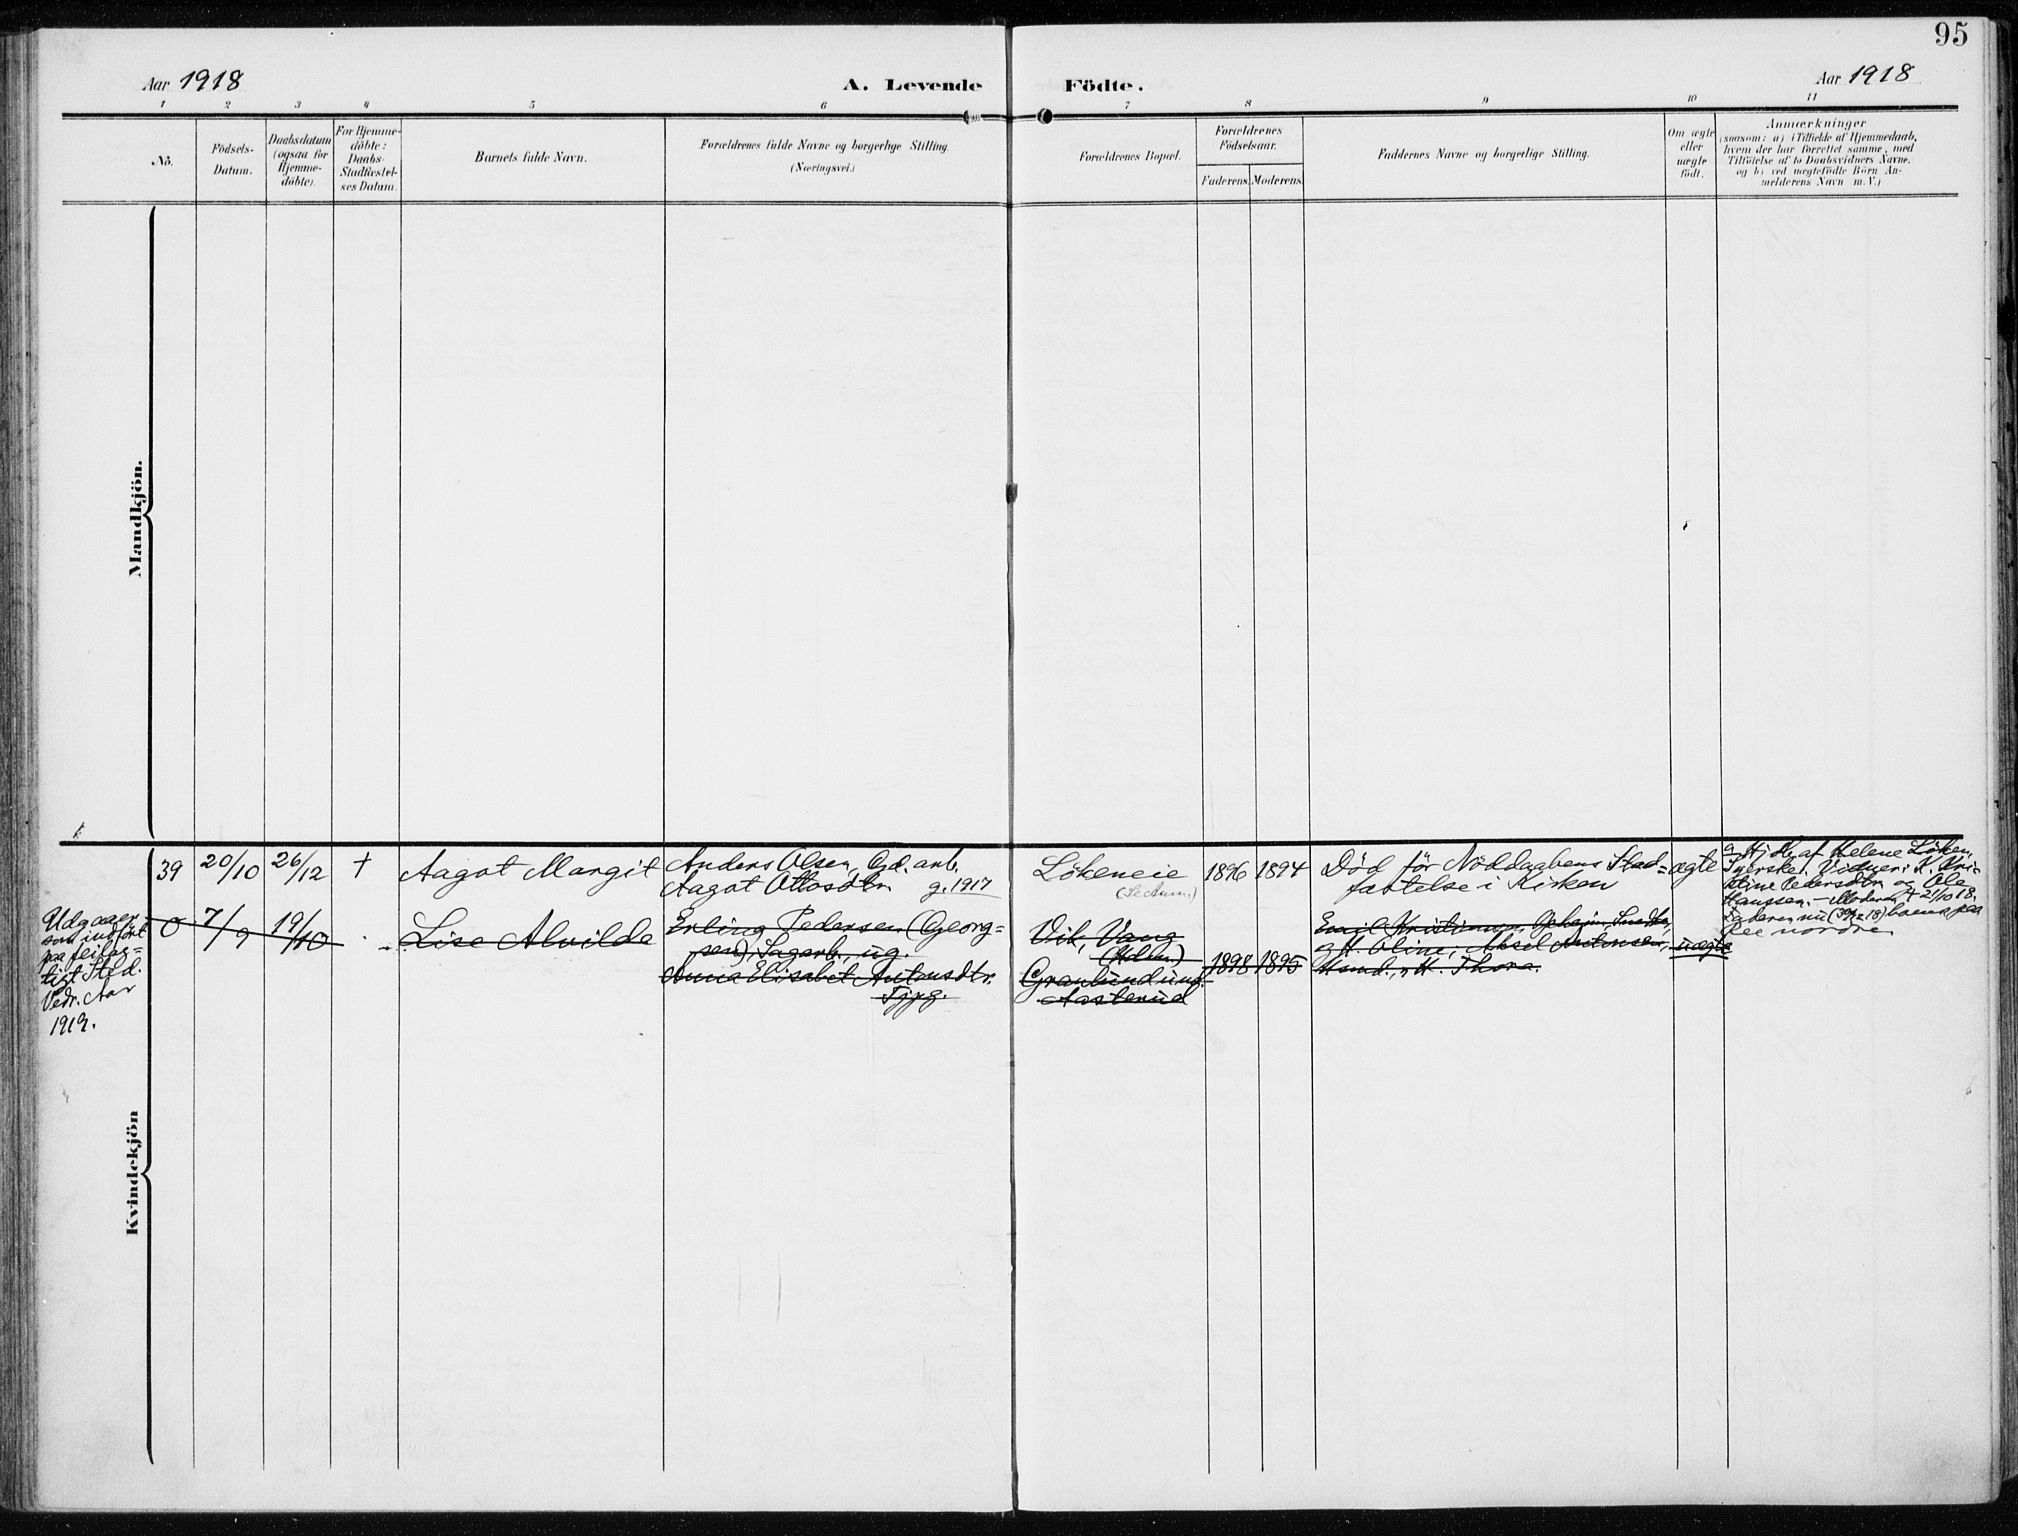 95
Aar 1918
A. Levende Födte.
Aar 1918
1 2 3 4 5 6 7 8 9 10 11
No.
Födsels-
Datum.
Daabsdatum
(ogsaa for
Hjemme-
døbte).
For Hjemme-
døbte:
Daabs-
Stadfæstel-
ses Datum.
Barnets fulde Navn.
Forældrenes fulde Navne og borgerlige Stilling.
(Næringsvei.)
Forældrenes Bopæl.
Forældrenes
Födselsaar.
Faderens. Moderens.
Faddernes Navne og borgerlige Stilling.
Om ægte
eller
uægte
födt.
Anmærkninger
(saasom: a) i Tilfælde af Hjemmedaab,
hvem der har forrettet samme, med
Tilföielse af to Daabsvidners Navne.
og b) ved uægtefödte Börn An-
melderens Navn m. V.)
Mandkjön.
39 20/10 26/12 + Aagot Margit
Anders Olsen, Gd. arb.
Aagot Ottosdtr. g. 1917
Lökeneie
1896 1894
Död för Nöddaabens Stad=
fæstelse i Kirken
ægte
Hj. db. af Helene Löken,
Syerske. Vidner: K. Kri-
stine Pedersdtr. og Ole
Hanssen. – Moderen + 21/10 18.
Faderen nu (30/12 18) boende paa
nordre
Udgaaer
som indfört
paa feilag=
tigt Sted.
Vedr. Aar
1919.
0 7/9 19/10 Lise Alvilde
Erling Pedersen (Georg=
sen), Sagarb., ug.
Anna Elisabet Antonsdtr.
Tj.pg.
Vik, Vang
(Hdlm.)
Granlund
Aasterud
1898 1895
Emil Kristiansen,
og H. Oline; Aksel Antonsen,
Hsmd., H. Thora.
uægte
Kvindekjön